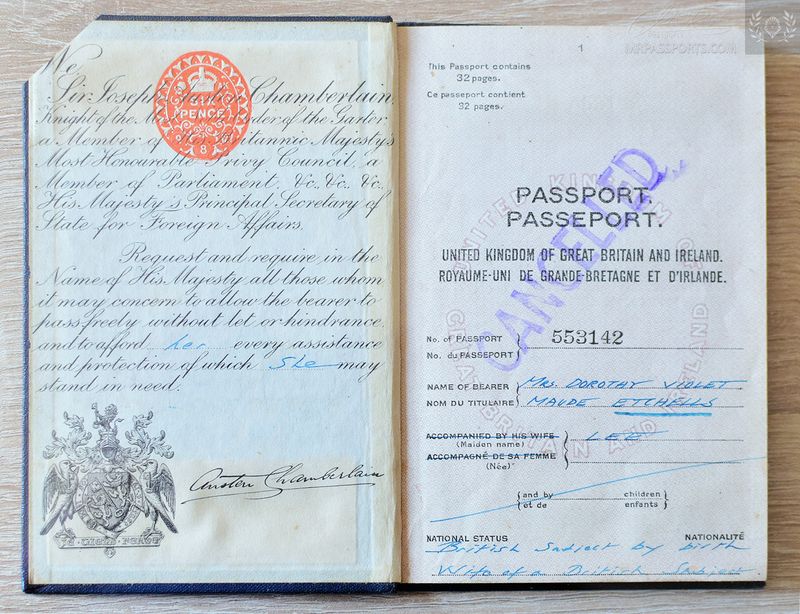 We
Sir Joseph Austen Chamberlain,
Knight of the Most Order of the Garter
a Member of His Britannic Majesty's
Most Honourable Privy Council, a
Member of Parliament, &c, &c, &c.
His Majesty's Principal Secretary of
State for Foreign Affairs.
Request and require in the
Name of His Majesty all those whom
it may concern to allow the bearer to
pass freely without let or hindrance,
and to afford her every assistance
and protection of which She may
stand in need.
Austen Chamberlain
PENCE
8
MRPASSPORTS.COM
1
This Passport contains
32 pages.
Ce passeport contient
32 pages.
PASSPORT.
PASSEPORT.
CANCELLED
UNITED KINGDOM OF GREAT BRITAIN AND IRELAND.
ROYAUME-UNI DE GRANDE-BRETAGNE ET D'IRLANDE.
No. of PASSPORT
No. du PASSEPORT
553142
NAME OF BEARER
NOM DU TITULAIRE
MRS. DOROTHY VIOLET
MAUDE ETCHELLS
ACCOMPANIED BY HIS WIFE
(Maiden name)
ACCOMPAGNÉ DE SA FEMME
(Née)
LEE
and by children
et de enfants
NATIONAL STATUS NATIONALITÉ
British Subject by birth
Wife of a British Subject